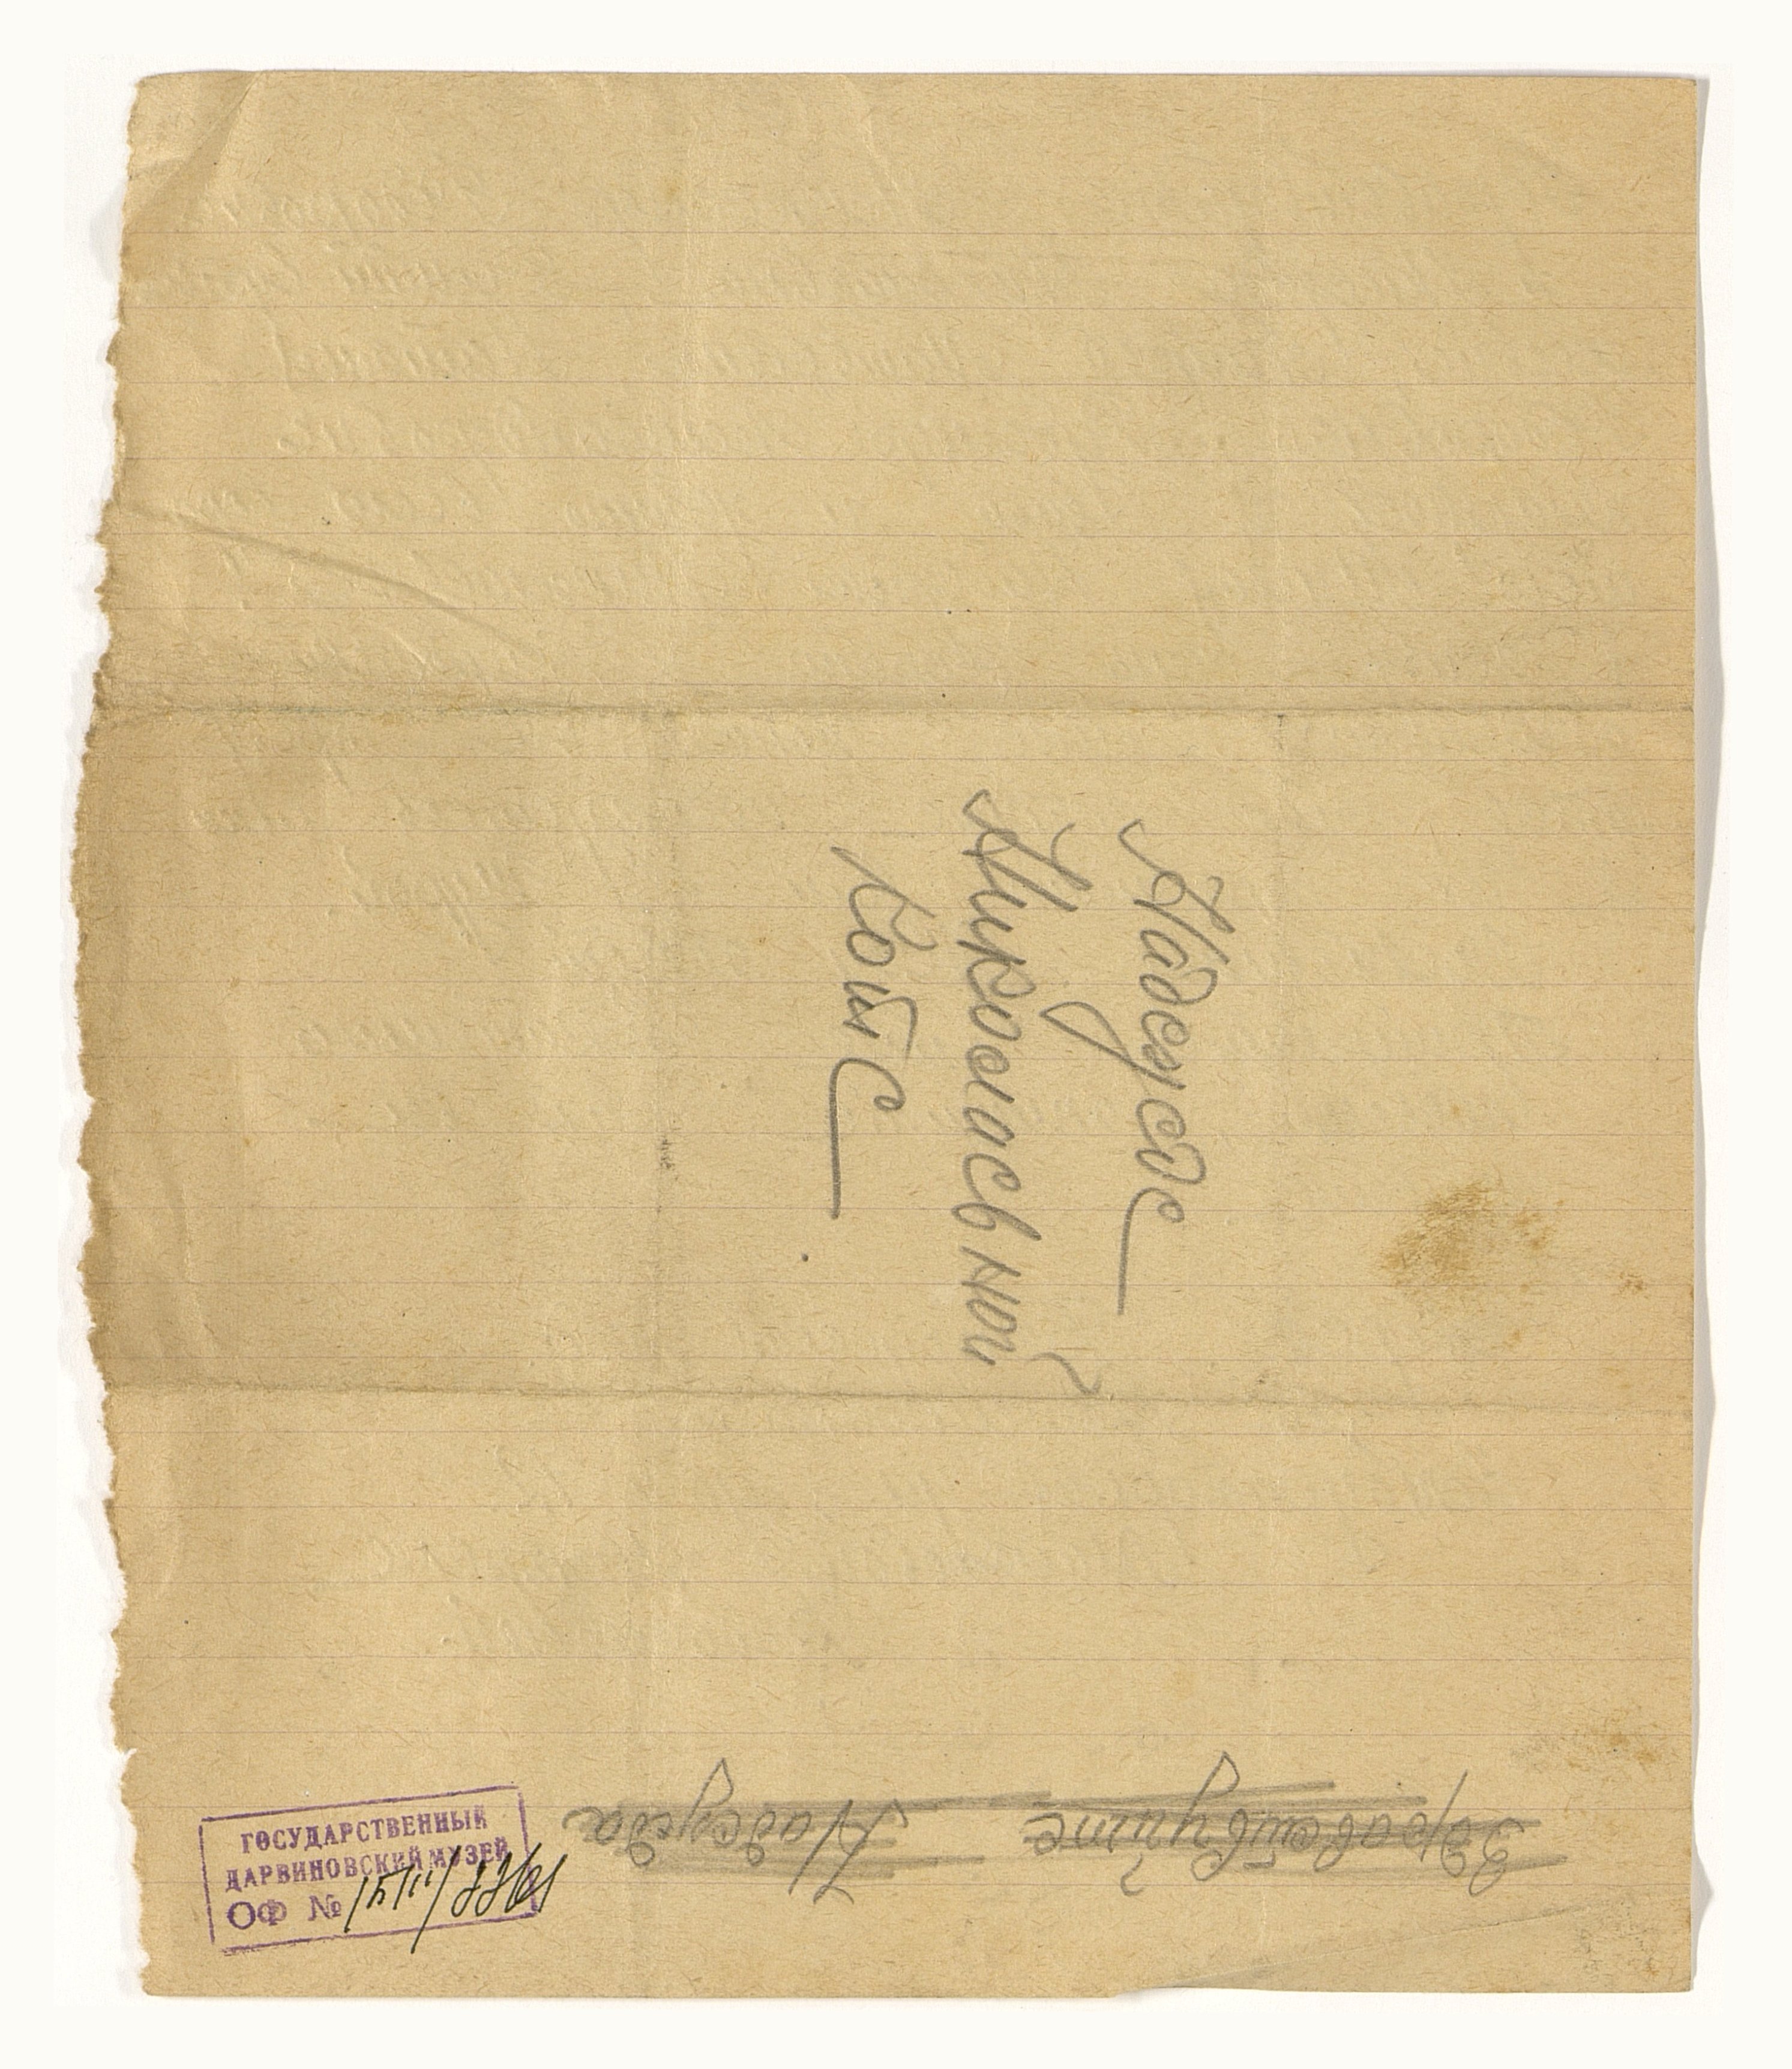 Надежде
Николаевной
Котс
Здравствуйте Надежда
ГОСУДАРСТВЕННЫЙ
ДАРВИНОВСКИЙ МУЗЕЙ
ОФ №